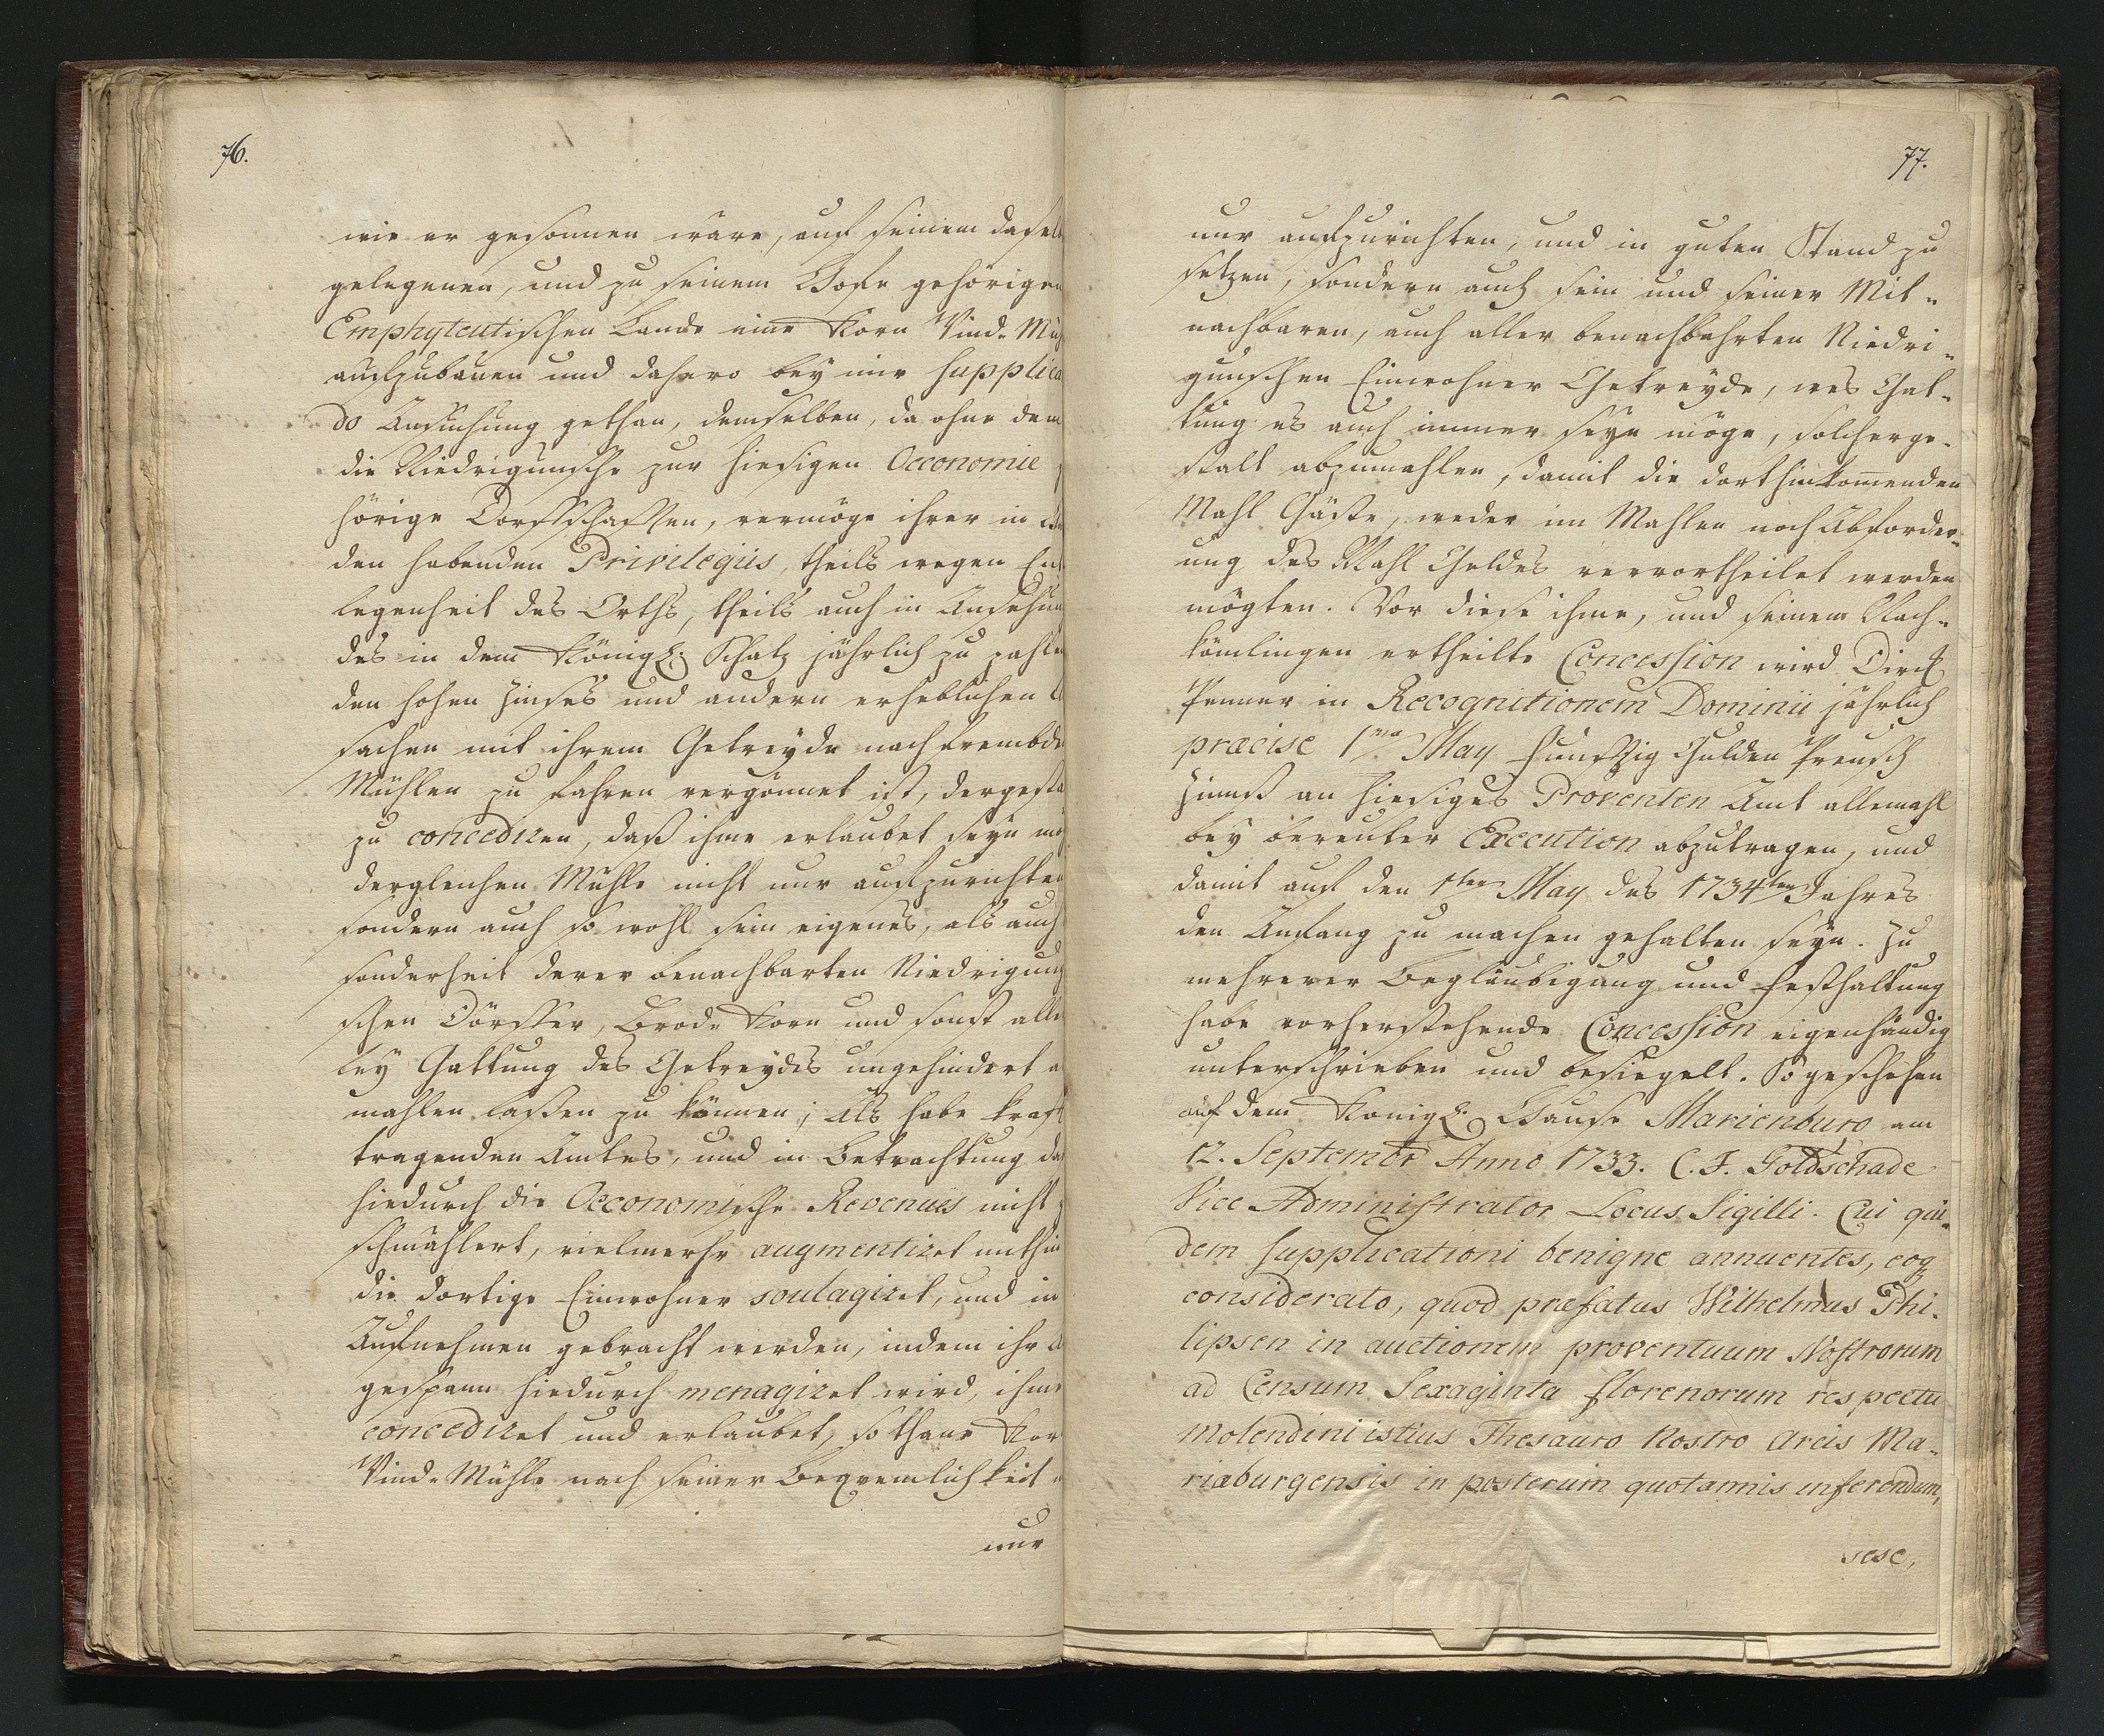 76.
wie er gesonnen wäre, auf seinem dasel
gelegenen, und zu seinem Hofe gehörigen
Emphyteutischen Lande eine Korn Wind-Mü
aufzubauen und dahero bey mir supplica
do Ansuchung gethan, demselben, da ohne dem
die Niedrigunsche zur hiesigen Oeconomie
hörige Dorffschafften, vermöge ihrer in
den habenden Privilegiis, theils wegen Ent
legenheit des Orths, theils auch in Ansehun
des in dem Königl. Schatz jährlich zu zahle
den hohen Zinses und andern erheblichen
sachen mit ihrem Getreyde nach frembde
Mühlen zu fahren vergönnet ist, dergesta
zu concediren, daß ihme erlaubet seyn mög
dergleichen Mühle nicht nur aufzurichten
sondern auch so wohl sein eigenes, als auch
sonderheit derer benachbarten Niedrigung
schen Dörffer, Brod-Korn und sonst aller
ley Gattung des Getreydes ungehindert a
mahlen laßen zu können; Als habe kraft
tragenden Amtes, und in Betrachtung da
hiedurch die Oeconomische Revenues nicht
schmählert, vielmehr augmentiret mithin
die dortige Einwohner soulagiret, und in
Aufnehmen gebracht werden, indem ihr A
gespann hiedurch menagiret wird, ihme
concediret und erlaubet, sothane Kor
Wind-Mühle nach seiner Beqvemlichkeit
nur
77.
nur aufzurichten, und in guten Stand zu
setzen, sondern auch sein und seiner Mit-
nachbaren, auch aller benachbahrten Niedri-
gunschen Einwohner Getreyde, wes Gat-
tung es auch immer seyn möge, solcherge-
stalt abzumahlen, damit die dorthinkomenden
Mahl Gäste, weder im Mahlen noch Abforder-
ung des Mahl Geldes vervortheilet werden
mögten. Vor diese ihme, und seinem Nach-
kömlingen ertheilte Concession wird Dirck
Penner in Recognitionem Dominii jährlich
præcise 1ma May funffzig Gulden Preusch
Zinnß an hiesiges Proventen Amt allemahl
bey bereuter Execution abzutragen, und
damit auf den 1ten May des 1734ten Jahres
den Anfang zu machen gehalten seyn. Zu
mehrerer Beglaubigung und Festhaltung
habe vorherstehende Concession eigenhändig
unterschrieben und besiegelt. So geschehen
auf dem Königl. Hause Marienburg am
12. Septembr Anno 1733. C. F. Goldschade
Vice Administrator Locus Sigilli. Cui qui-
dem supplicationi benigne annuentes, eoq
considerato, quod præfatus Wilhelmus Phi-
lipsen in auctionem proventuum Nostrorum
ad Censum Sexaginta florenorum respectu
molendini istius Thesauro Nostro Arcis Ma-
riæburgensis in posterum quotannis inferendum,
sese,